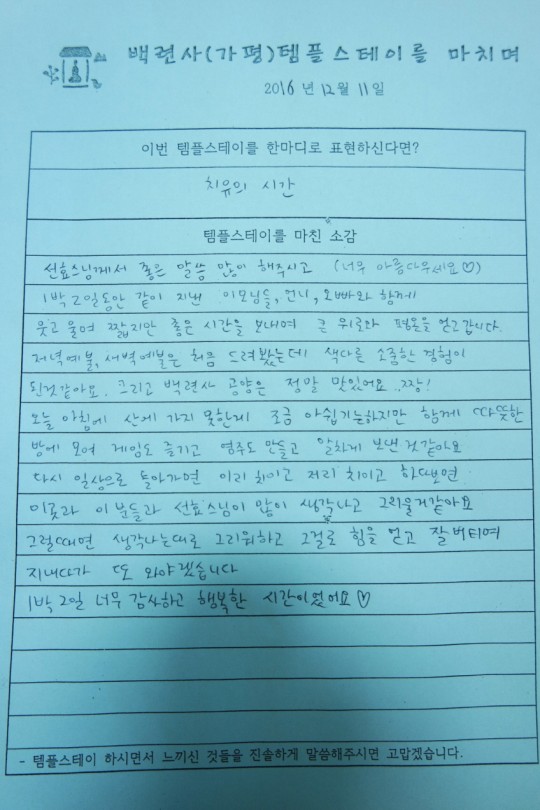 백련사(가평)템플스테이를 마치며
2016년 12월 11일
이번 템플스테이를 한마디로 표현하신다면?
치유의 시간
템플스테이를 마친 소감
선효스님께서 좋은 말씀 많이 해주시고 (너무 아름다우세요♡)
1박 2일동안 같이 지낸 이모님들, 언니, 오빠와 함께
웃고 울며 짧지만 좋은 시간을 보내며 큰 위로와 평온을 얻고갑니다.
저녁예불, 새벽예불은 처음 드려봤는데 색다른 소중한 경험이
된것같아요. 그리고 백련사 공양은 정말 맛있어요 ..짱!
오늘 아침에 산에 가지 못한게 조금 아쉽기는하지만 함께 따뜻한
방에 모여 게임도 즐기고 염주도 만들고 알차게 보낸것같아요
다시 일상으로 돌아가면 이리 치이고 저리 치이고 하다보면
이곳과 이 분들과 선효스님이 많이 생각나고 그리울거같아요
그럴때면 생각나는대로 그리워하고 그걸로 힘을 얻고 잘 버티며
지내다가 또 와야겠습니다
1박 2일 너무 감사하고 행복한 시간이었어요♡
- 템플스테이 하시면서 느끼신 것들을 진솔하게 말씀해주시면 고맙겠습니다.